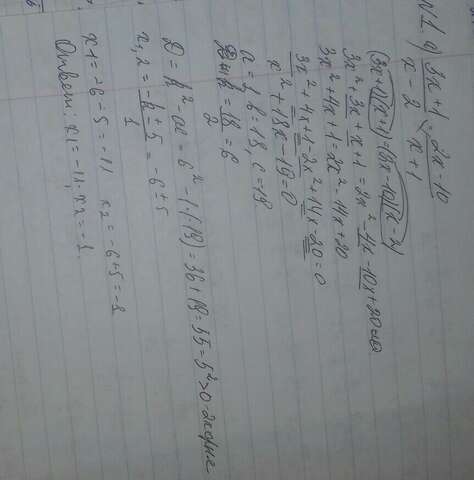 №1. a) (3x+1)/(x-2) = (2x-10)/(x+1)
(3x+1)(x+1)=(2x-10)(x-2)
3x²+3x+x+1=2x²-4x-10x+20
3x²+4x+1=2x²-14x+20
3x²+4x+1-2x²+14x-20=0
x²+18x-19=0
a=1, b=18, c=-19
k=18/2=6
D=k²-ac=6²-1·(-19)=36+19=55=5²>0-2корня
x1,2=(-k±5)/1=-6±5
x1=-6-5=-11 x2=-6+5=-1
Ответ: x1=-11; x2=-1.